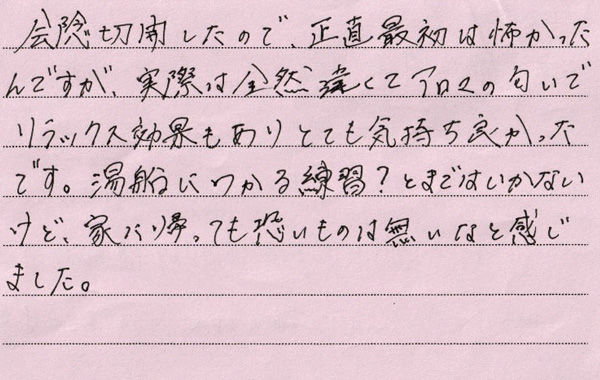 会陰切開したので、正直最初は怖かった
んですが、実際は全然違くてアロマの匂いで
リラックス効果もありとても気持ち良かった
です。湯船につかる練習?とまではいかない
けど、家に帰っても恐いものは無いなと感じ
ました。